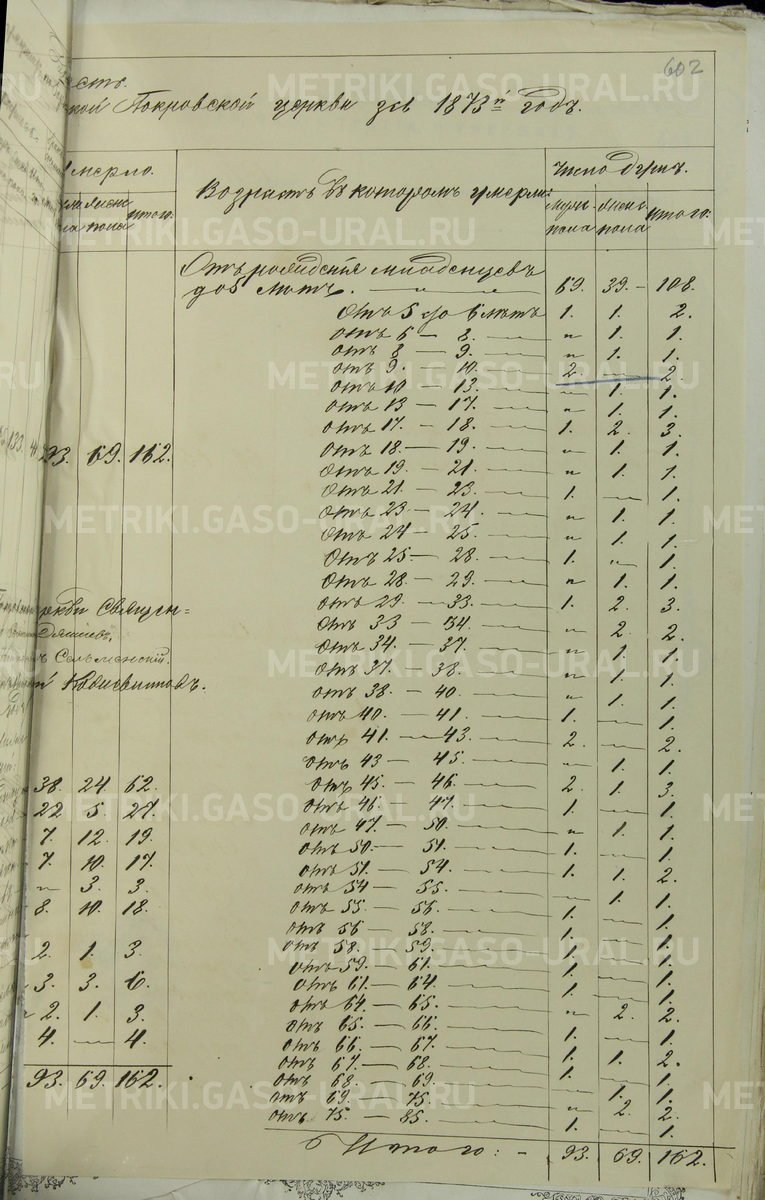 602
сть.
ской Покровской церкви за 1873й годъ.
Умерло.
Возрастъ въ котором умерли:
Число душъ.
Муж. пола
Женс. пола
итого:
Женс пола
итого.
Отъ рожденія младенцевъ
до 5 лѣтъ. — " — 69. 39. — 108.
Отъ 5 до 6 лѣтъ 1. 1. 2.
отъ 6 — 8. — " 1. 1.
отъ 8 — 9. — " 1. 1.
отъ 9. — 10. — 2. — 2.
отъ 10 — 13. — — 1. 1.
отъ 13 — 17. — " 1. 1.
отъ 17. — 18. — 1. 2. 3.
отъ 18. — 19. — " 1. 1.
отъ 19. — 21. — " 1. 1.
отъ 21. — 23. — 1. — 1.
отъ 23 — 24. — " 1. 1.
отъ 24 — 25. — " 1. 1.
Отъ 25. — 28. — 1. " 1.
отъ 28 — 29. — " 1. 1.
отъ 29. — 33. — 1. 2. 3.
отъ 33 — 34. — " 2. 2.
отъ 34. — 37. — " 1. 1.
отъ 37. — 38. — " 1. 1.
отъ 38. — 40. — " 1. 1.
отъ 40. — 41. — 1. — 1.
отъ 41. — 43. — 2. — 2.
отъ 43 — 45. — — 1. 1.
отъ 45. — 46. — 2. 1. 3.
отъ 46. — 47. — 1. — 1.
отъ 47. — 50. — " 1. 1.
отъ 50. — 51. — 1. — 1.
отъ 51. — 54. — 1. 1. 2.
отъ 54 — 55. — — 1. 1.
отъ 55. — 56. — 1. — 1.
отъ 56 — 58. — 1. — 1.
отъ 58. — 59. — 1. — 1.
отъ 59. — 61. — 1. — 1.
отъ 61. — 64. — 1. — 1.
отъ 64. — 65. — " 2. 2.
отъ 65. — 66. — 1. — 1.
отъ 66. — 67. — 1. 1. 2.
отъ 67. — 68. — 1. — 1.
отъ 68. — 69. — — 1. 1.
отъ 69. — 75. — " 2. 2.
отъ 75. — 85. — 1. — 1.
Итого: - 93. 69. 162.
93. 69. 162.
церкви Священ=
Сельменскій.
38. 24. 62.
22. 5. 27.
7. 12. 19.
7. 10. 17.
— 3. 3.
8. 10. 18.
2. 1. 3.
3. 3. 6.
2. 1. 3.
4. — 4.
93. 69. 162.
METRIKI.GASO-URAL.RU